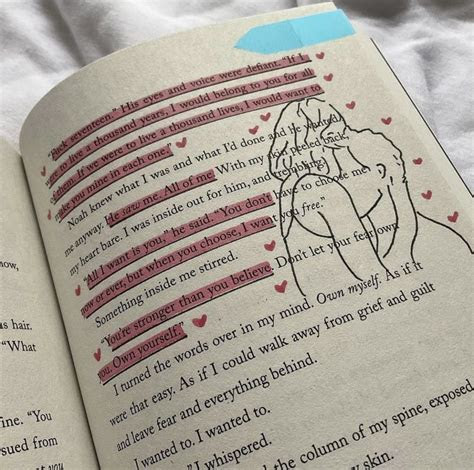 now,
is hair.
“What
fine. “You
sued from
“Fuck seventeen.” His eyes and voice were defiant. “If I
to live a thousand years, I would belong to you for all
them. If we were to live a thousand lives, I would want to
make you mine in each one.”
Noah knew what I was and what I'd done and he wanted
me anyway. He saw me. All of me. With my skin peeled back,
my heart bare. I was inside out for him, and trembling.
“All I want is you,” he said. “You don't have to choose me
now or ever, but when you choose, I want you free.”
Something inside me stirred.
“You're stronger than you believe. Don't let your fear own
you. Own yourself.”
I turned the words over in my mind. Own myself. As if it
were that easy. As if I could walk away from grief and guilt
and leave fear and everything behind.
I wanted to. I wanted to.
I whispered.
the column of my spine, exposed
skin.